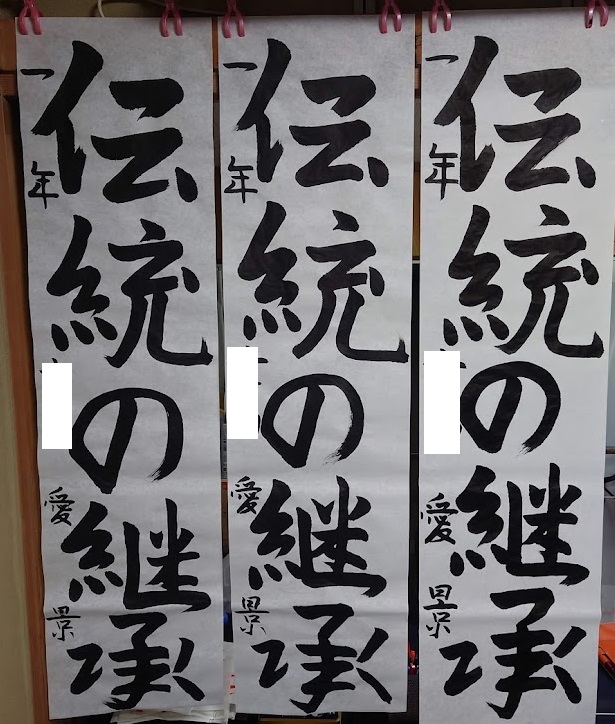 伝統の継承
一年 愛景
伝統の継承
一年 愛景
伝統の継承
一年 愛景